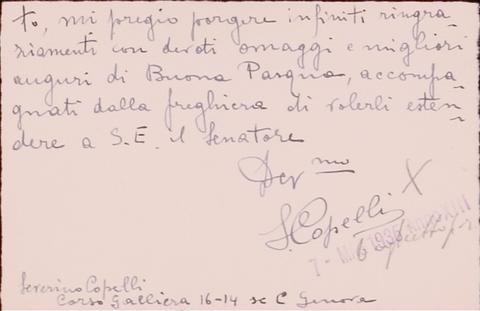 to, mi pregio porgere infiniti ringra
ziamenti con devoti omaggi e migliori
auguri di Buona Pasqua, accompa
gnati dalla preghiera di volerli esten=
dere a S.E. il Senatore
Dev mo
S. Copelli X
7 - 1936 ANNO XIII
Severino Copelli
Corso Galliera 16-14 sc C Genova